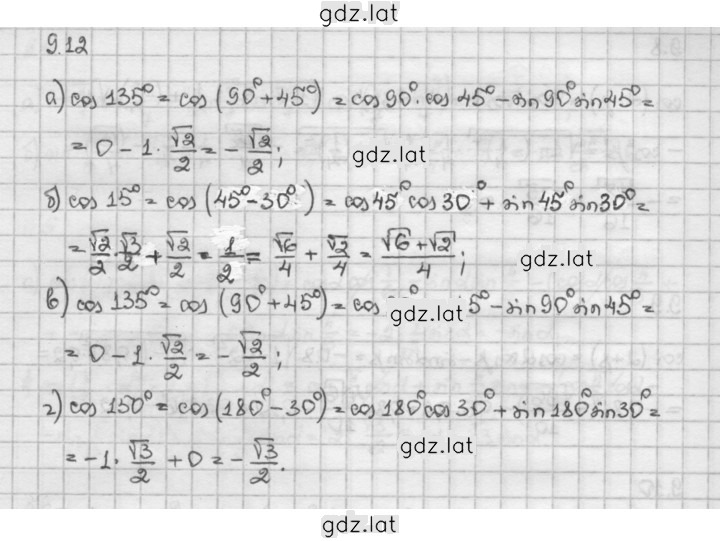 gdz.lat
9.12
а) cos 135° = cos (90° + 45°) = cos 90° · cos 45° - sin 90° sin 45° =
= 0 - 1 · √2/2 = - √2/2;
gdz.lat
б) cos 15° = cos (45° - 30°) = cos 45° cos 30° + sin 45° sin 30° =
= √2/2 · √3/2 + √2/2 · 1/2 = √6/4 + √2/4 = (√6 + √2)/4;
gdz.lat
в) cos 135° = cos (90° + 45°) = cos 5° - sin 90° sin 45° =
gdz.lat
= 0 - 1 · √2/2 = - √2/2;
г) cos 150° = cos (180° - 30°) = cos 180° cos 30° + sin 180° sin 30° =
= -1 · √3/2 + 0 = - √3/2.
gdz.lat
gdz.lat